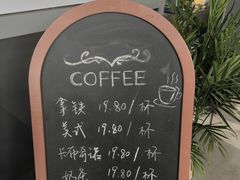 COFFEE
拿铁 19.80/杯
美式 19.80/杯
卡布奇诺 19.80/杯
奶茶 19.80/杯